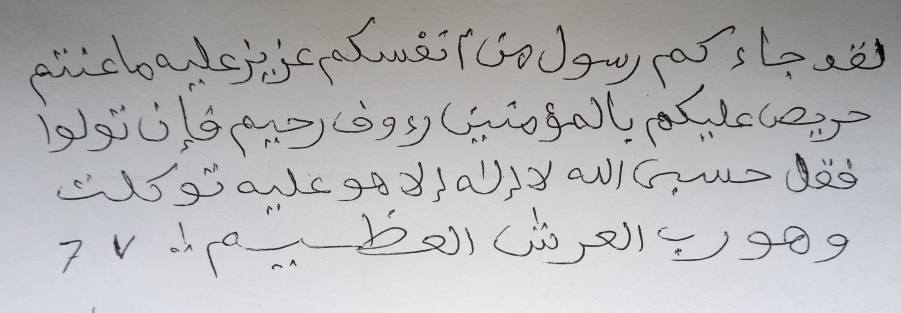 لقد جاء كم رسول من أنفسكم عزيز عليه ما عنتم
حريص عليكم بالمؤمنين رءوف رحيم فإن تولوا
فقل حسبي الله لا إله إلا هو عليه توكلت
وهو رب العرش العظيم ∴ ٧ 7